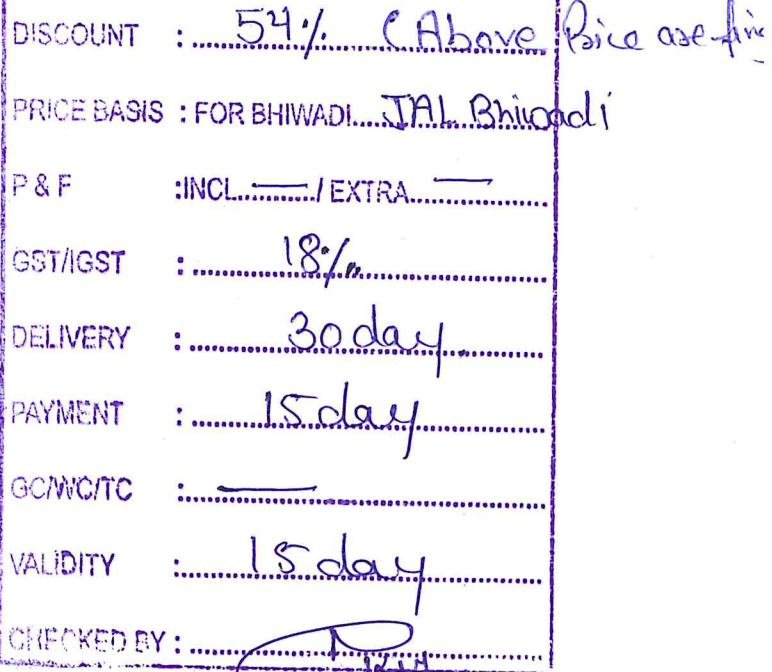 DISCOUNT : 54% (Above Price are
PRICE BASIS : FOR BHIWADI.... JAL Bhiwadi
P & F :INCL...—..../ EXTRA....—....
GST/IGST : 18%
DELIVERY : 30 day.
PAYMENT : 15 day
GC/WC/TC : —
VALIDITY : 15 day
CHECKED BY :